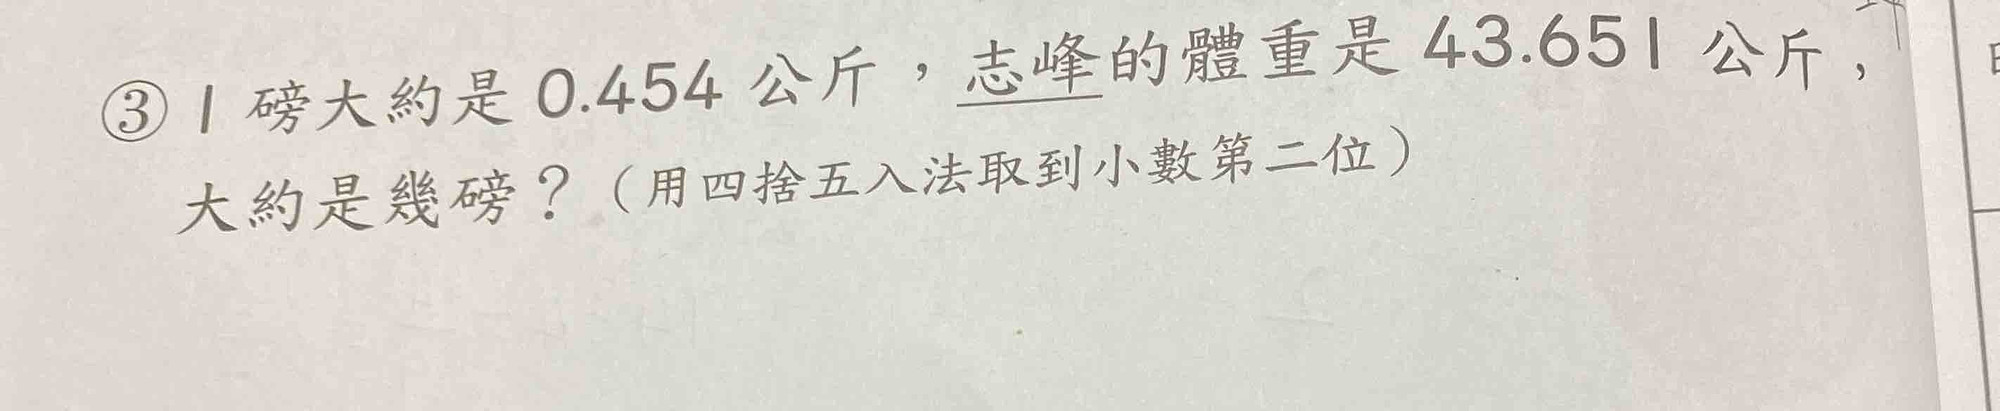 ③ 1 磅大約是 0.454 公斤，志峰的體重是 43.651 公斤，
大約是幾磅？（用四捨五入法取到小數第二位）